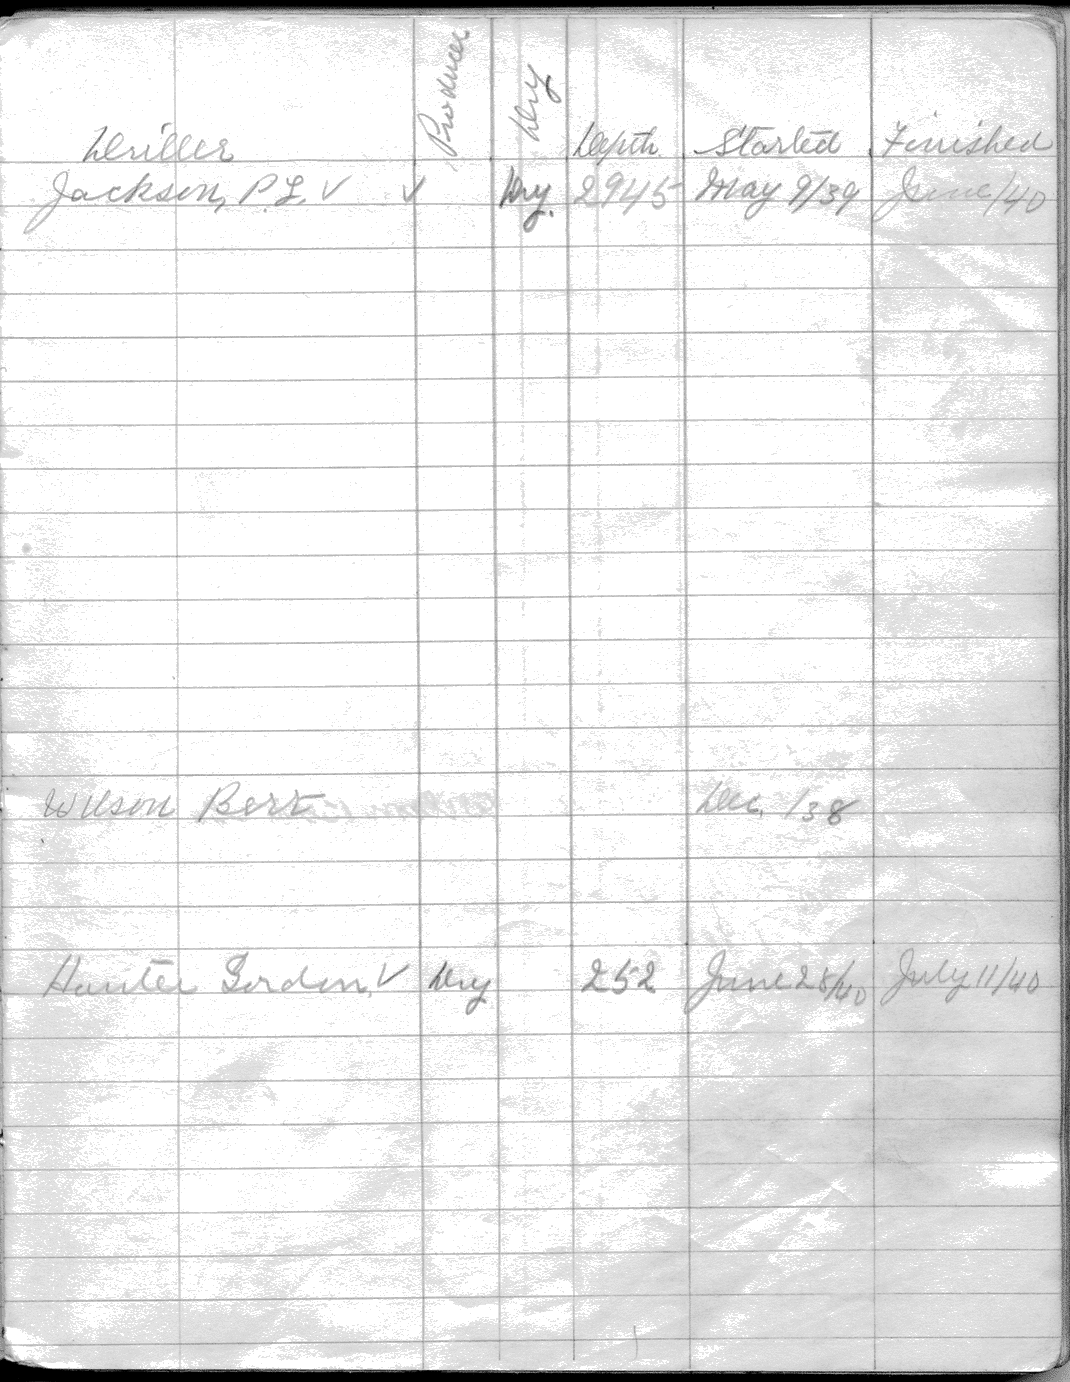 Driller Producer Dry Depth Started Finished
Jackson, P.L. √ √ Dry. 2945 May 9/39 June/40
Wilson Bert Dec. /38
Hunter Gordon, √ Dry 252 June 28/40 July 11/40